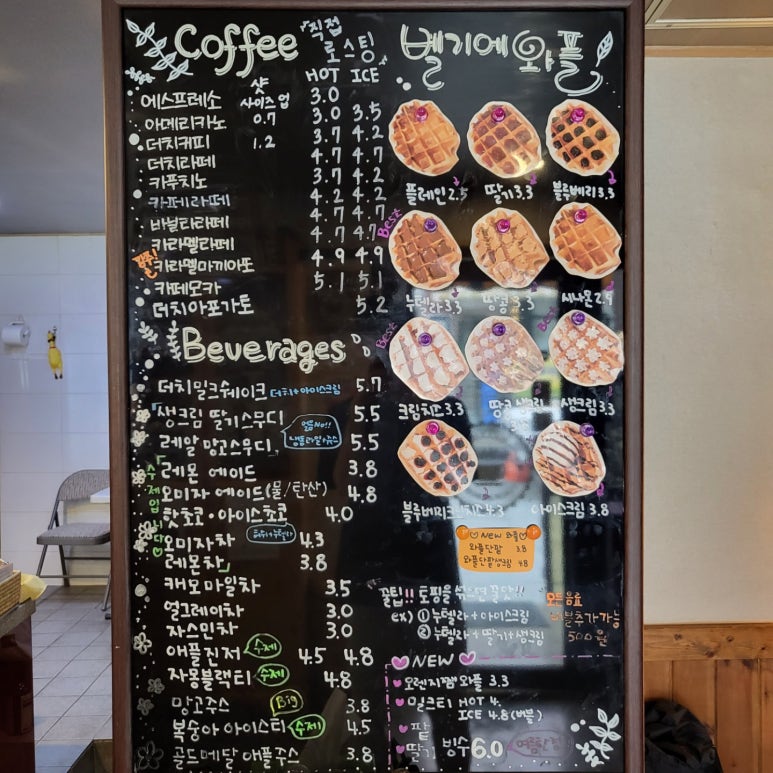 Coffee 직접 로스팅
샷 사이즈 업 HOT ICE
에스프레소 3.0
아메리카노 0.7 3.0 3.5
더치커피 1.2 3.7 4.2
더치라떼 4.7 4.7
카푸치노 3.7 4.2
카페라떼 4.2 4.2
바닐라라떼 4.7 4.7
카라멜라떼 4.7 4.7
카라멜마끼아또 4.9 4.9
카페모카 5.1 5.1
더치아포가토 5.2
Beverages
더치밀크쉐이크 더치+아이스크림 5.7
생크림 딸기스무디 5.5
얼음No!!
냉동과일+쥬스
레알 망고스무디 5.5
레몬 에이드 3.8
오미자 에이드(물/탄산) 4.8
핫초코·아이스초코 4.0
오미자차 4.3
레몬차 3.8
수제입니다
캐모마일차 3.5
얼그레이차 3.0
자스민차 3.0
애플진저 수제 4.5 4.8
자몽블랙티 수제 4.8
망고주스 Big 3.8
복숭아 아이스티 수제 4.5
골드메달 애플주스 3.8
벨기에 와플
플레인 2.5 딸기 3.3 블루베리 3.3
Best
누텔라 3.3 땅콩 3.3 시나몬 2.9
Best Best
크림치즈 3.3 땅콩 생크림 생크림 3.3
블루베리크림치즈 4.3 아이스크림 3.8
NEW 와플
와플단팥 3.8
와플단팥생크림 4.8
꿀팁!! 토핑을 섞으면 꿀맛!!
ex) ① 누텔라+아이스크림
② 누텔라+딸기+생크림
모든음료
버블추가가능
500원
NEW
오렌지쨈 와플 3.3
밀크티 HOT 4.
ICE 4.8 (버블)
팥
딸기 빙수 6.0